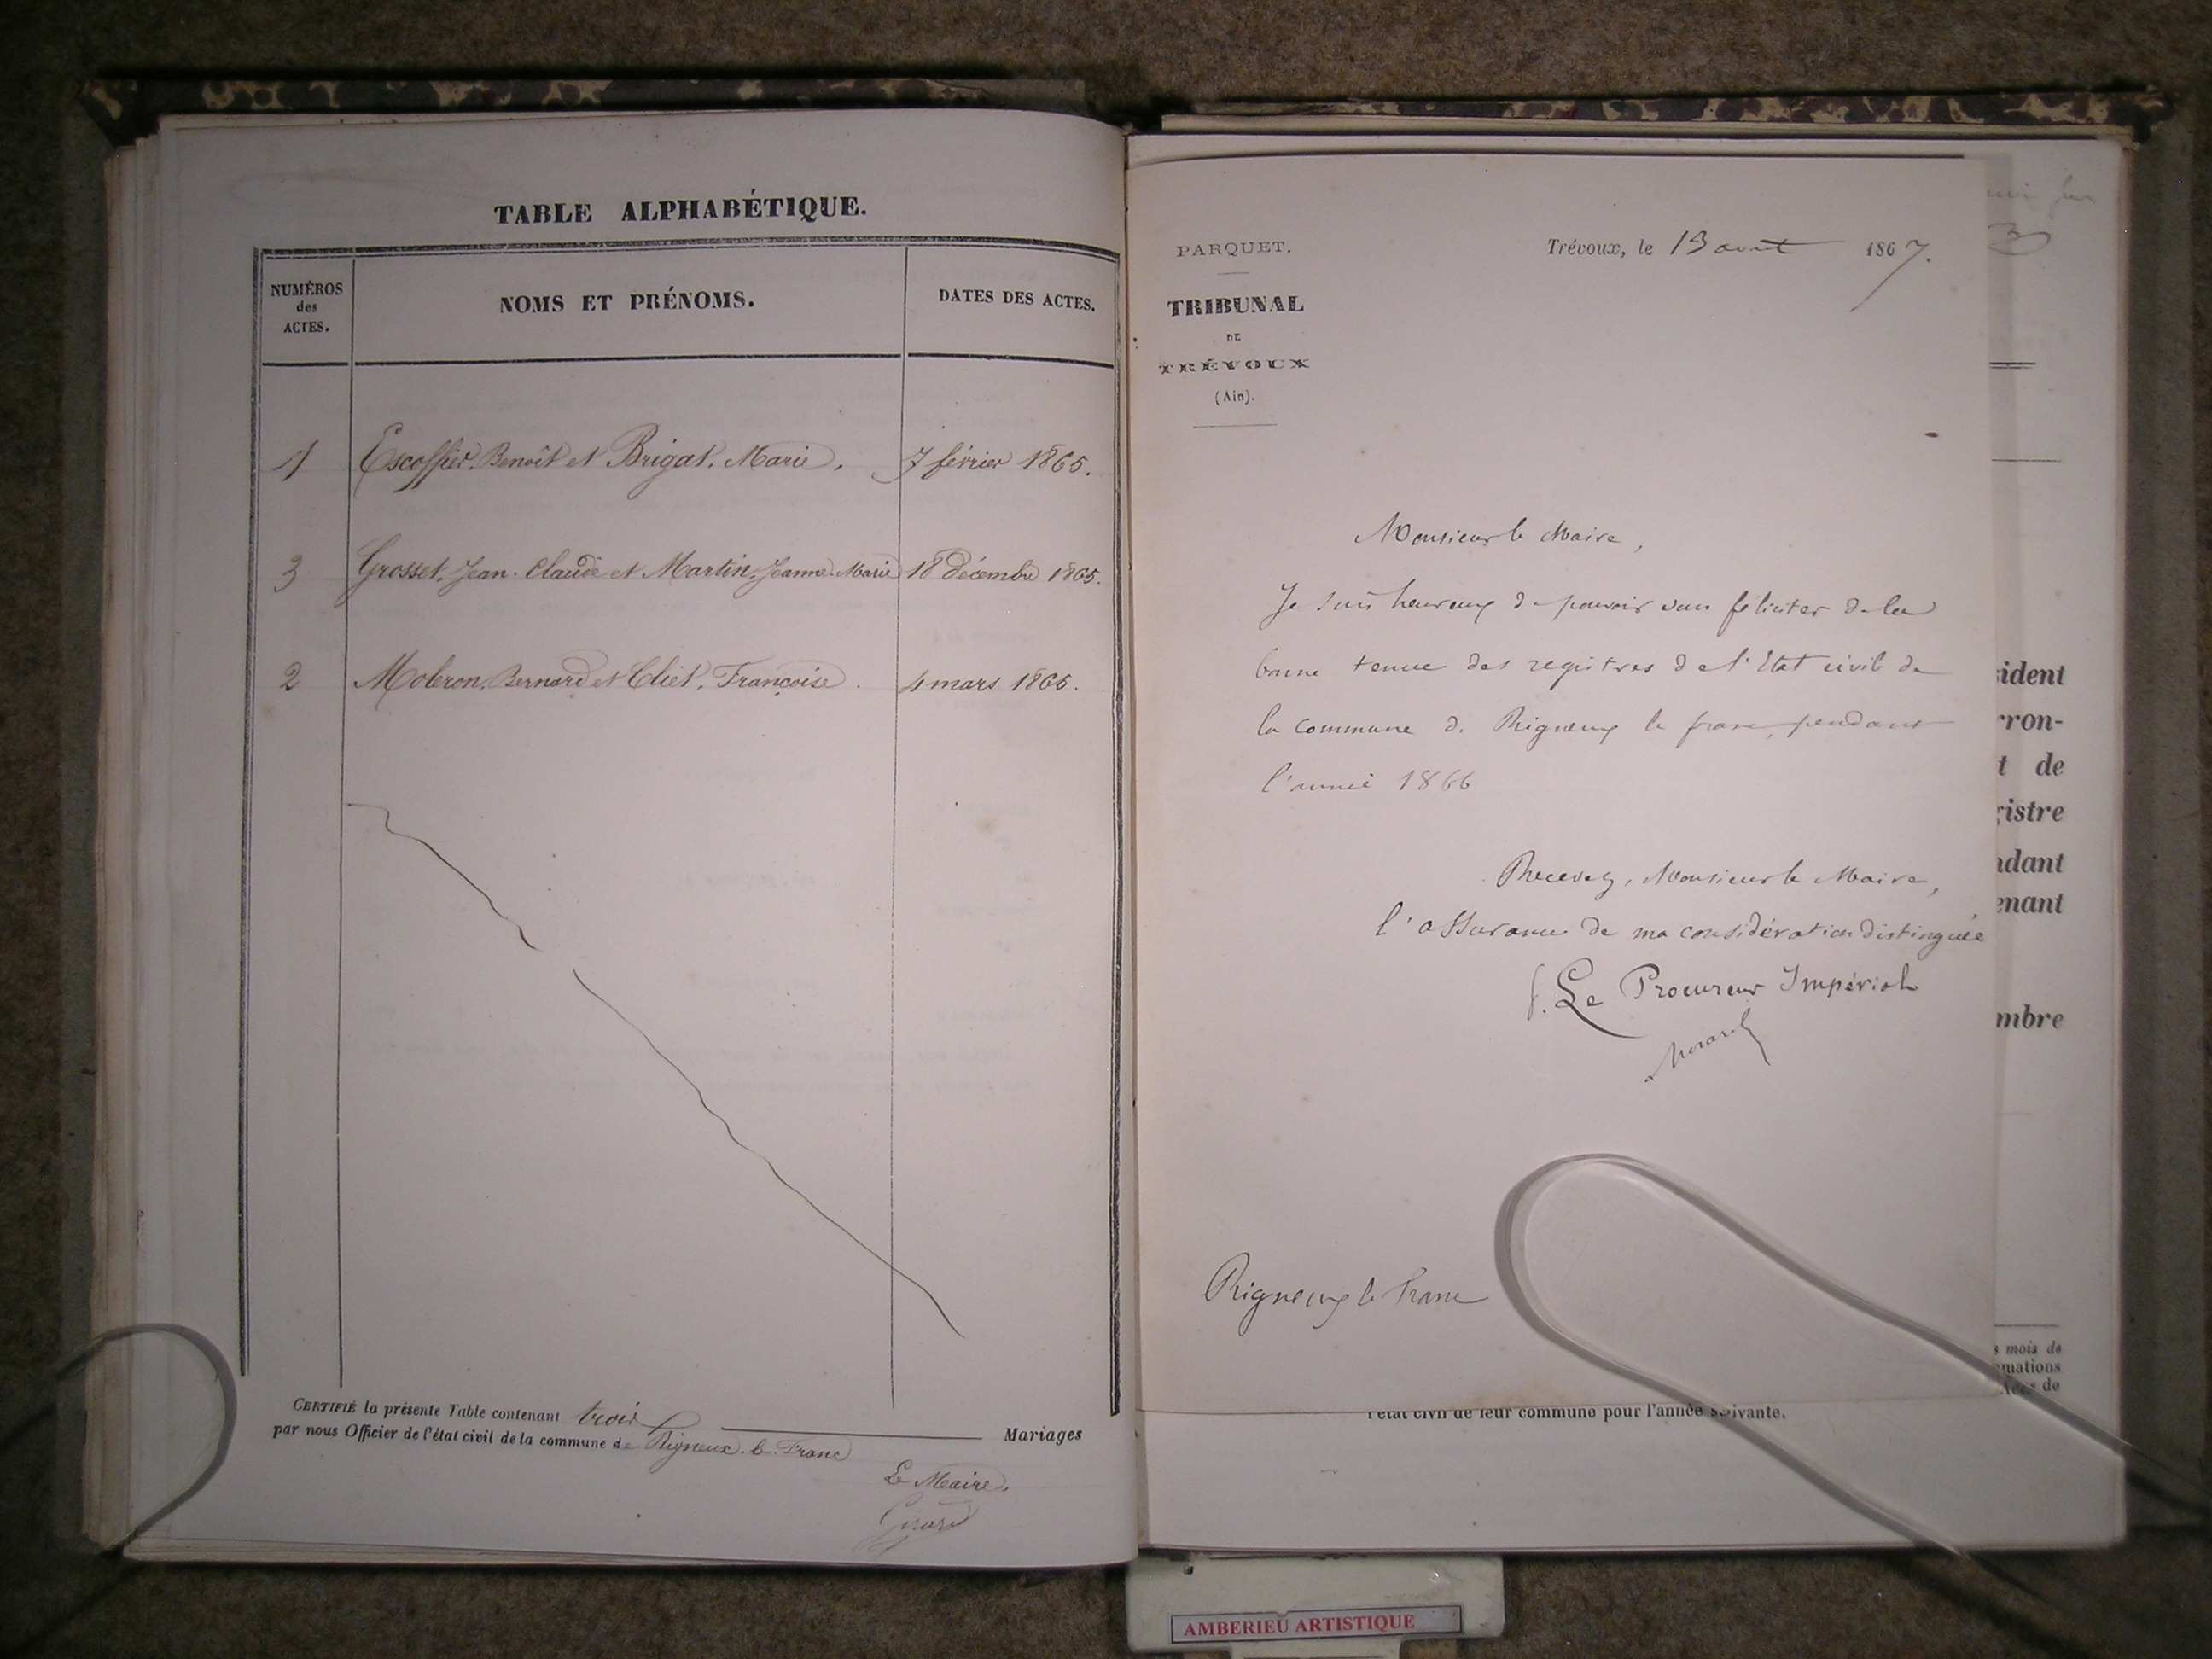 TABLE ALPHABÉTIQUE.
NUMÉROS
des
ACTES.
NOMS ET PRÉNOMS.
DATES DES ACTES.
1 Escoffier, Benoît et Brigat, Marie. 7 février 1865.
3 Grosset, Jean-Claude et Martin, Jeanne-Marie 18 Décembre 1865.
2 Bernard et Cliet, Françoise. 4 mars 1865.
CERTIFIÉ la présente Table contenant trois
Mariages
par nous Officier de l'état civil de la commune de Rigneux-le-Franc
Le Maire,
Girard
PARQUET.
TRIBUNAL
DE
TRÉVOUX
(Ain).
Trévoux, le 13 1867.
Monsieur le Maire,
Je suis heureux de pouvoir vous féliciter de la
bonne tenue des registres de l'Etat civil de
la commune de Rigneux le franc, pendant
l'année 1866
Recevez, Monsieur le Maire,
l'assurance de ma considération distinguée
Le Procureur Impérial
Rigneux le Franc
ident
rron-
t de
istre
ndant
enant
mbre
s mois de
mations
de
l'état civil de leur commune pour l'année suivante.
AMBERIEU ARTISTIQUE